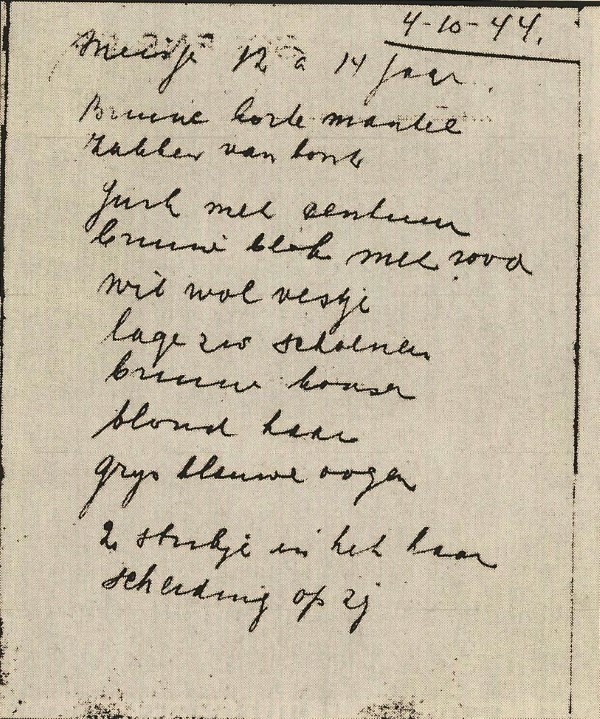 4-10-44.
Meisje 12 à 14 jaar.
Bruine korte mantel
zakken van bont
Jurk met centuur
bruine blok met rood
wit wol vestje
lage zw schoenen
bruine kousen
blond haar
grijs blauwe oogen
2 strikje in het haar
scheiding op zij